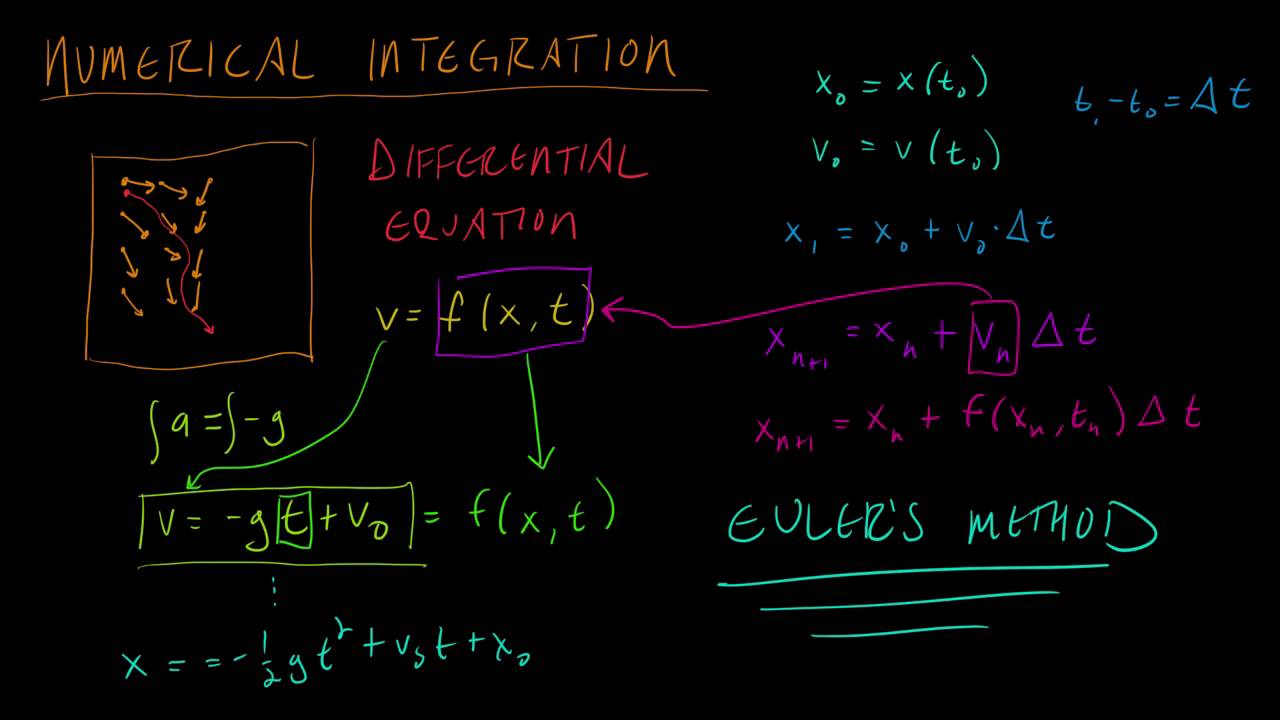 NUMERICAL INTEGRATION
DIFFERENTIAL
EQUATION
v = f(x, t)
∫a = ∫-g
v = -gt + v₀ = f(x, t)
⋮
x = = -½gt² + v₀t + x₀
x₀ = x(t₀)
t₁ - t₀ = Δt
v₀ = v(t₀)
x₁ = x₀ + v₀·Δt
xₙ₊₁ = xₙ + vₙ Δt
xₙ₊₁ = xₙ + f(xₙ, tₙ) Δt
EULER'S METHOD